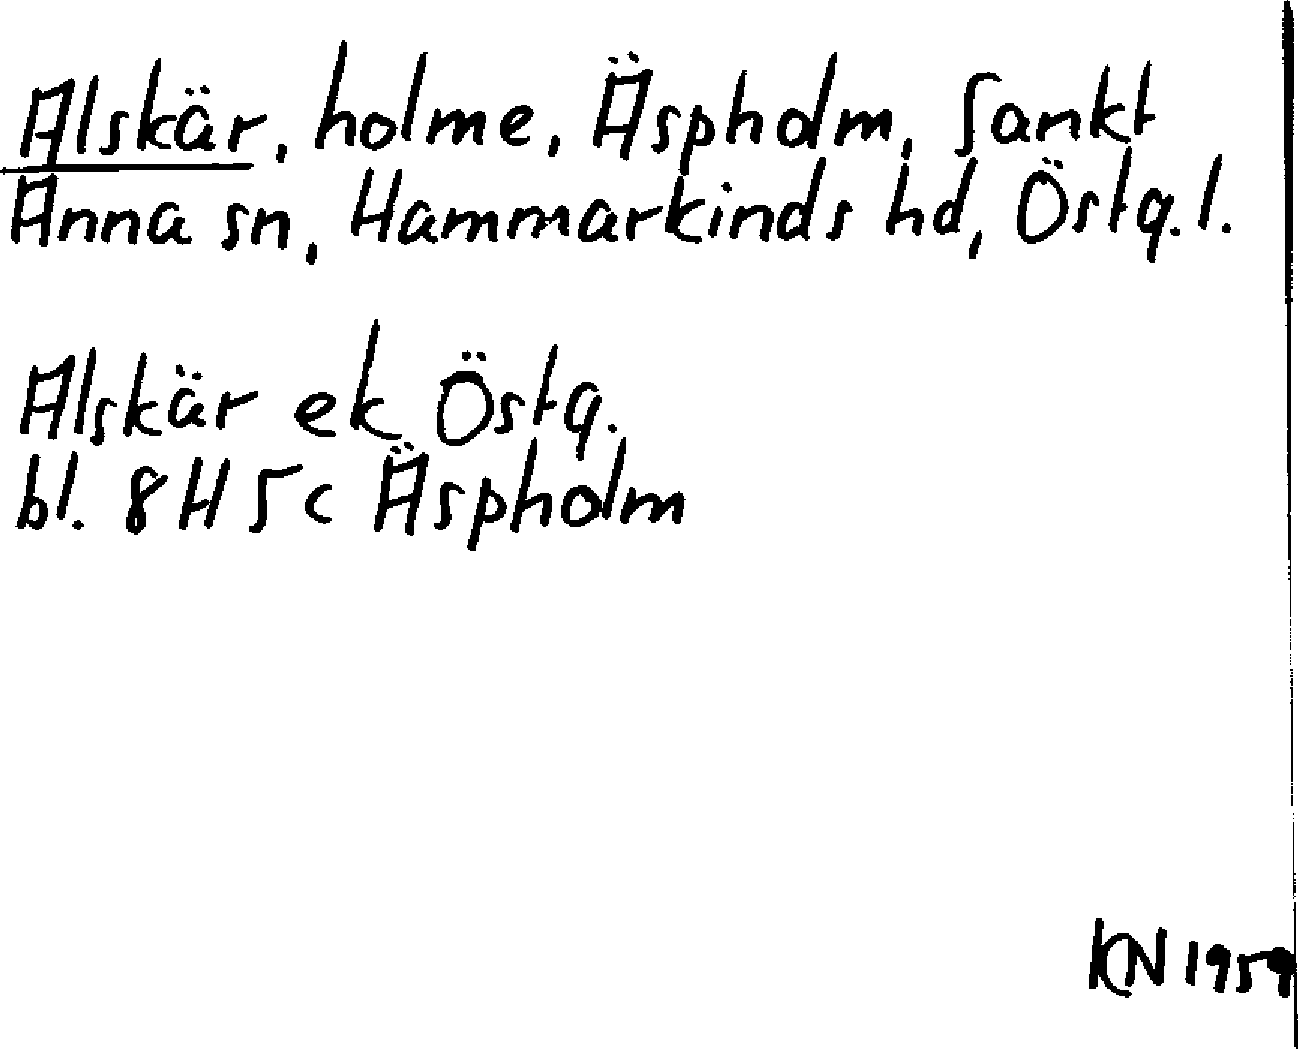 Alskär, holme, Äspholm, Sankt
Anna sn, Hammarkinds hd, Östg.l.
Alskär ek Östg.
bl. 8H5c Äspholm
KN 1959